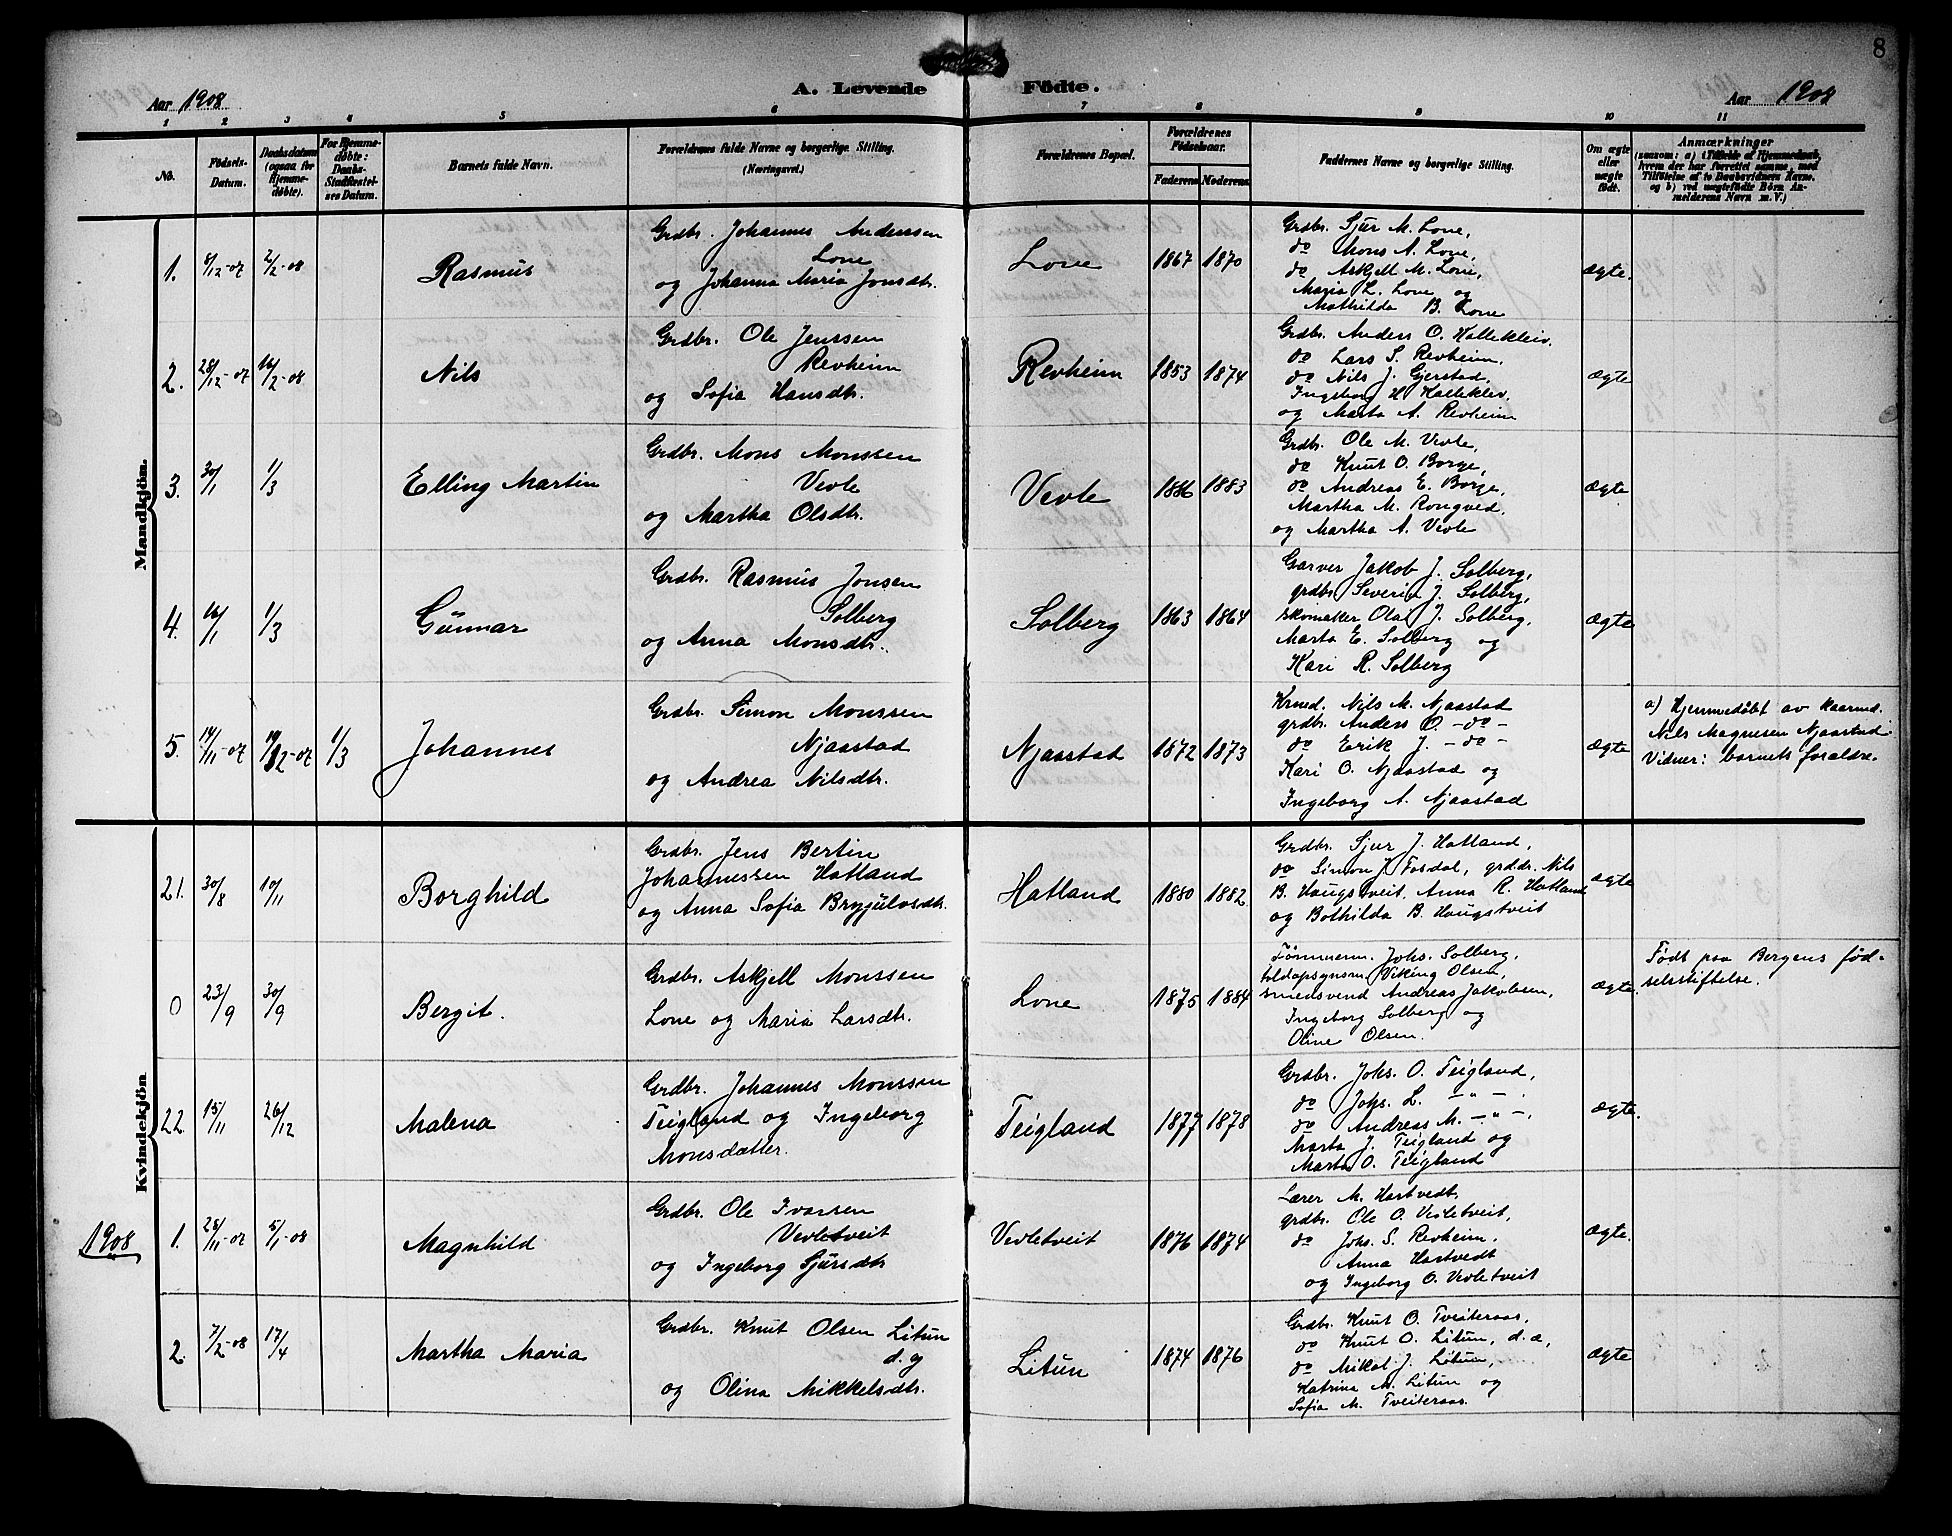 8
Aar 1908
A. Levende Fødte.
Aar 1908
1 2 3 4 5 6 7 8 9 10 11
No.
Fødsels-Datum.
Daabsdatum (ogsaa for Hjemmedøbte).
For Hjemmedøbte: Daabs-Stadfæstelses Datum.
Barnets fulde Navn.
Forældrenes fulde Navne og borgerlige Stilling.
(Næringsvei.)
Forældrenes Bopæl.
Forældrenes Fødselsaar.
Faderens. Moderens.
Faddernes Navne og borgerlige Stilling.
Om ægte eller uægte født.
Anmærkninger
(saasom: a) i Tilfælde af Hjemmedaab, hvem der har forrettet samme, med Tilføielse af to Daabsvidners Navne, og b) ved uægtefødte Børn Anmelderens Navn m. V.)
Mandkjøn.
1. 8/12-07 2/2-08
Rasmus
Grdbr. Johannes Anderssen
Lone
og Johanna Maria Jonsdtr.
Lone
1867 1870
Grdbr. Sjur M. Lone,
do Mons A. Lone,
do Askjell M. Lone,
Maria L. Lone og
Mathilda B. Lone
ægte.
2. 28/12-07 16/2-08
Nils
Grdbr. Ole Jenssen
Revheim
og Sofia Hansdtr.
Revheim
1853 1874
Grdbr. Anders O. Hallekleiv.
do Lars S. Revheim,
do Nils J. Gjerstad,
Ingeborg H. Hallekleiv.
og Marta A. Revheim
ægte
3. 30/1 1/3
Elling Martin
Grdbr. Mons Monssen
Vevle
og Martha Olsdtr.
Vevle
1886 1883
Grdbr. Ole M. Vevle,
do Knut O. Borge,
do Andreas E. Borge,
Martha M. Rongved,
og Martha A. Vevle
ægte
4. 16/1 1/3
Gunnar
Grdbr. Rasmus Jonsen
Solberg
og Anna Monsdtr.
Solberg
1863 1864
Garver Jakob J. Solberg,
grdbr. Severin J. Solberg,
skomaker Olai J. Solberg,
Marta E. Solberg og
Kari R. Solberg
ægte
5. 14/11-07 19/12-07 1/3
Johannes
Grdbr. Simon Monssen
Njaastad
og Andrea Nilsdtr.
Njaastad
1872 1873
Krmd. Nils M. Njaastad
grdbr. Anders O. -do-
do Erik J. -do-
Kari O. Njaastad og
Ingeborg A. Njaastad
ægte
a) Hjemmedøbt av kaarmd.
Nils Magnesen Njaastad
Vidner: barnets forældre.
Kvindekjøn
21. 30/8 10/11
Borghild
Grdbr. Jens Bertin
Johannessen Hatland
og Anna Sofia Brynjulvsdtr.
Hatland
1880 1882
Grdbr. Sjur J. Hatland,
do Simon J. Fosdal, grdbr. Nils
B. Haugstveit, Anna R. Hatland
og Bothilda B. Haugstveit
ægte
0 23/9 30/9
Bergit.
Grdbr. Askjell Monssen
Lone og Maria Larsdtr.
Lone
1875 1884
Tømmerm. Johs. Solberg,
toldopsynsm. Viking Olsen,
smedsvend Andreas Jakobsen,
Ingeborg Solberg og
Oline Olsen.
ægte.
Født paa Bergens fød-
selsstiftelse.
22. 15/11 26/12
Malena
Grdbr. Johannes Monssen
Teigland og Ingeborg
Monsdatter.
Teigland
1877 1878
Grdbr. Johs. O. Teigland,
do Johs. L. - " - .
do Andreas M. - " - ,
Marta J. Teigland og
Marta O. Teigland
ægte.
1908
1. 28/11-07 5/1-08
Magnhild
Grdbr. Ole Ivarsen
Vevletveit
og Ingeborg Sjursdtr
Vevletveit
1876 1874
Lærer M. Hartvedt,
grdbr. Ole O. Vevletveit,
do Johs. S. Revheim.
Anna Hartvedt
og Ingeborg O. Vevletveit
ægte.
2. 7/2-08 17/4
Martha Maria
Grdbr. Knut Olsen Litun
d. y
og Olina Mikkelsdtr.
Litun
1874 1876
Grdbr. Knut O. Tveiteraas,
do Knut O. Litun, d. æ,
do Mikal J. Litun,
Katrina M. Litun og
Sofia M. Tveiteraas.
ægte